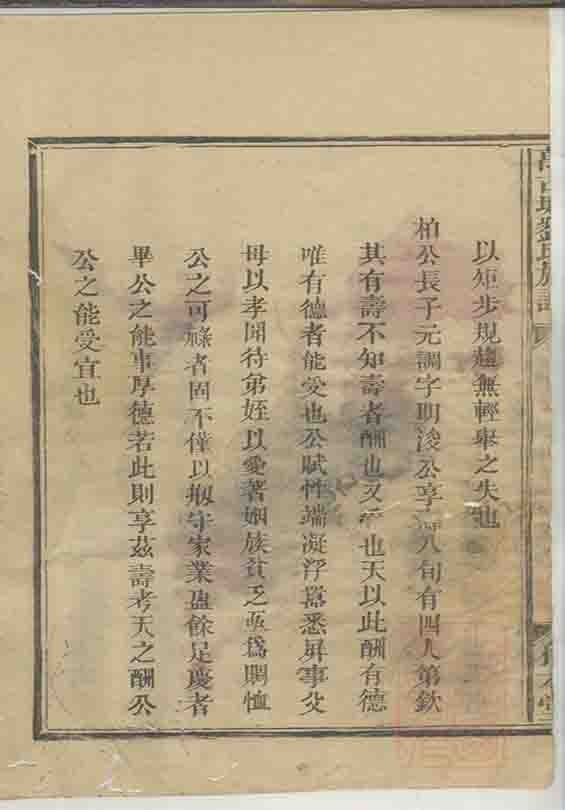 劉氏族譜
以矩步規趨無輕舉之失也
柏公長子元調字明浚公享壽八旬有四人第欽
其有壽不知壽者酬也又 也天以此酬有德
唯有德者能受也公賦性端凝浮囂悉屏事父
母以孝聞待弟姪以愛著姻族貧乏亟為賙恤
公之可祿者固不僅以報守家業盈餘足慶者
畢公之能事厚德若此則享茲壽考天之酬公
公之能受宜也